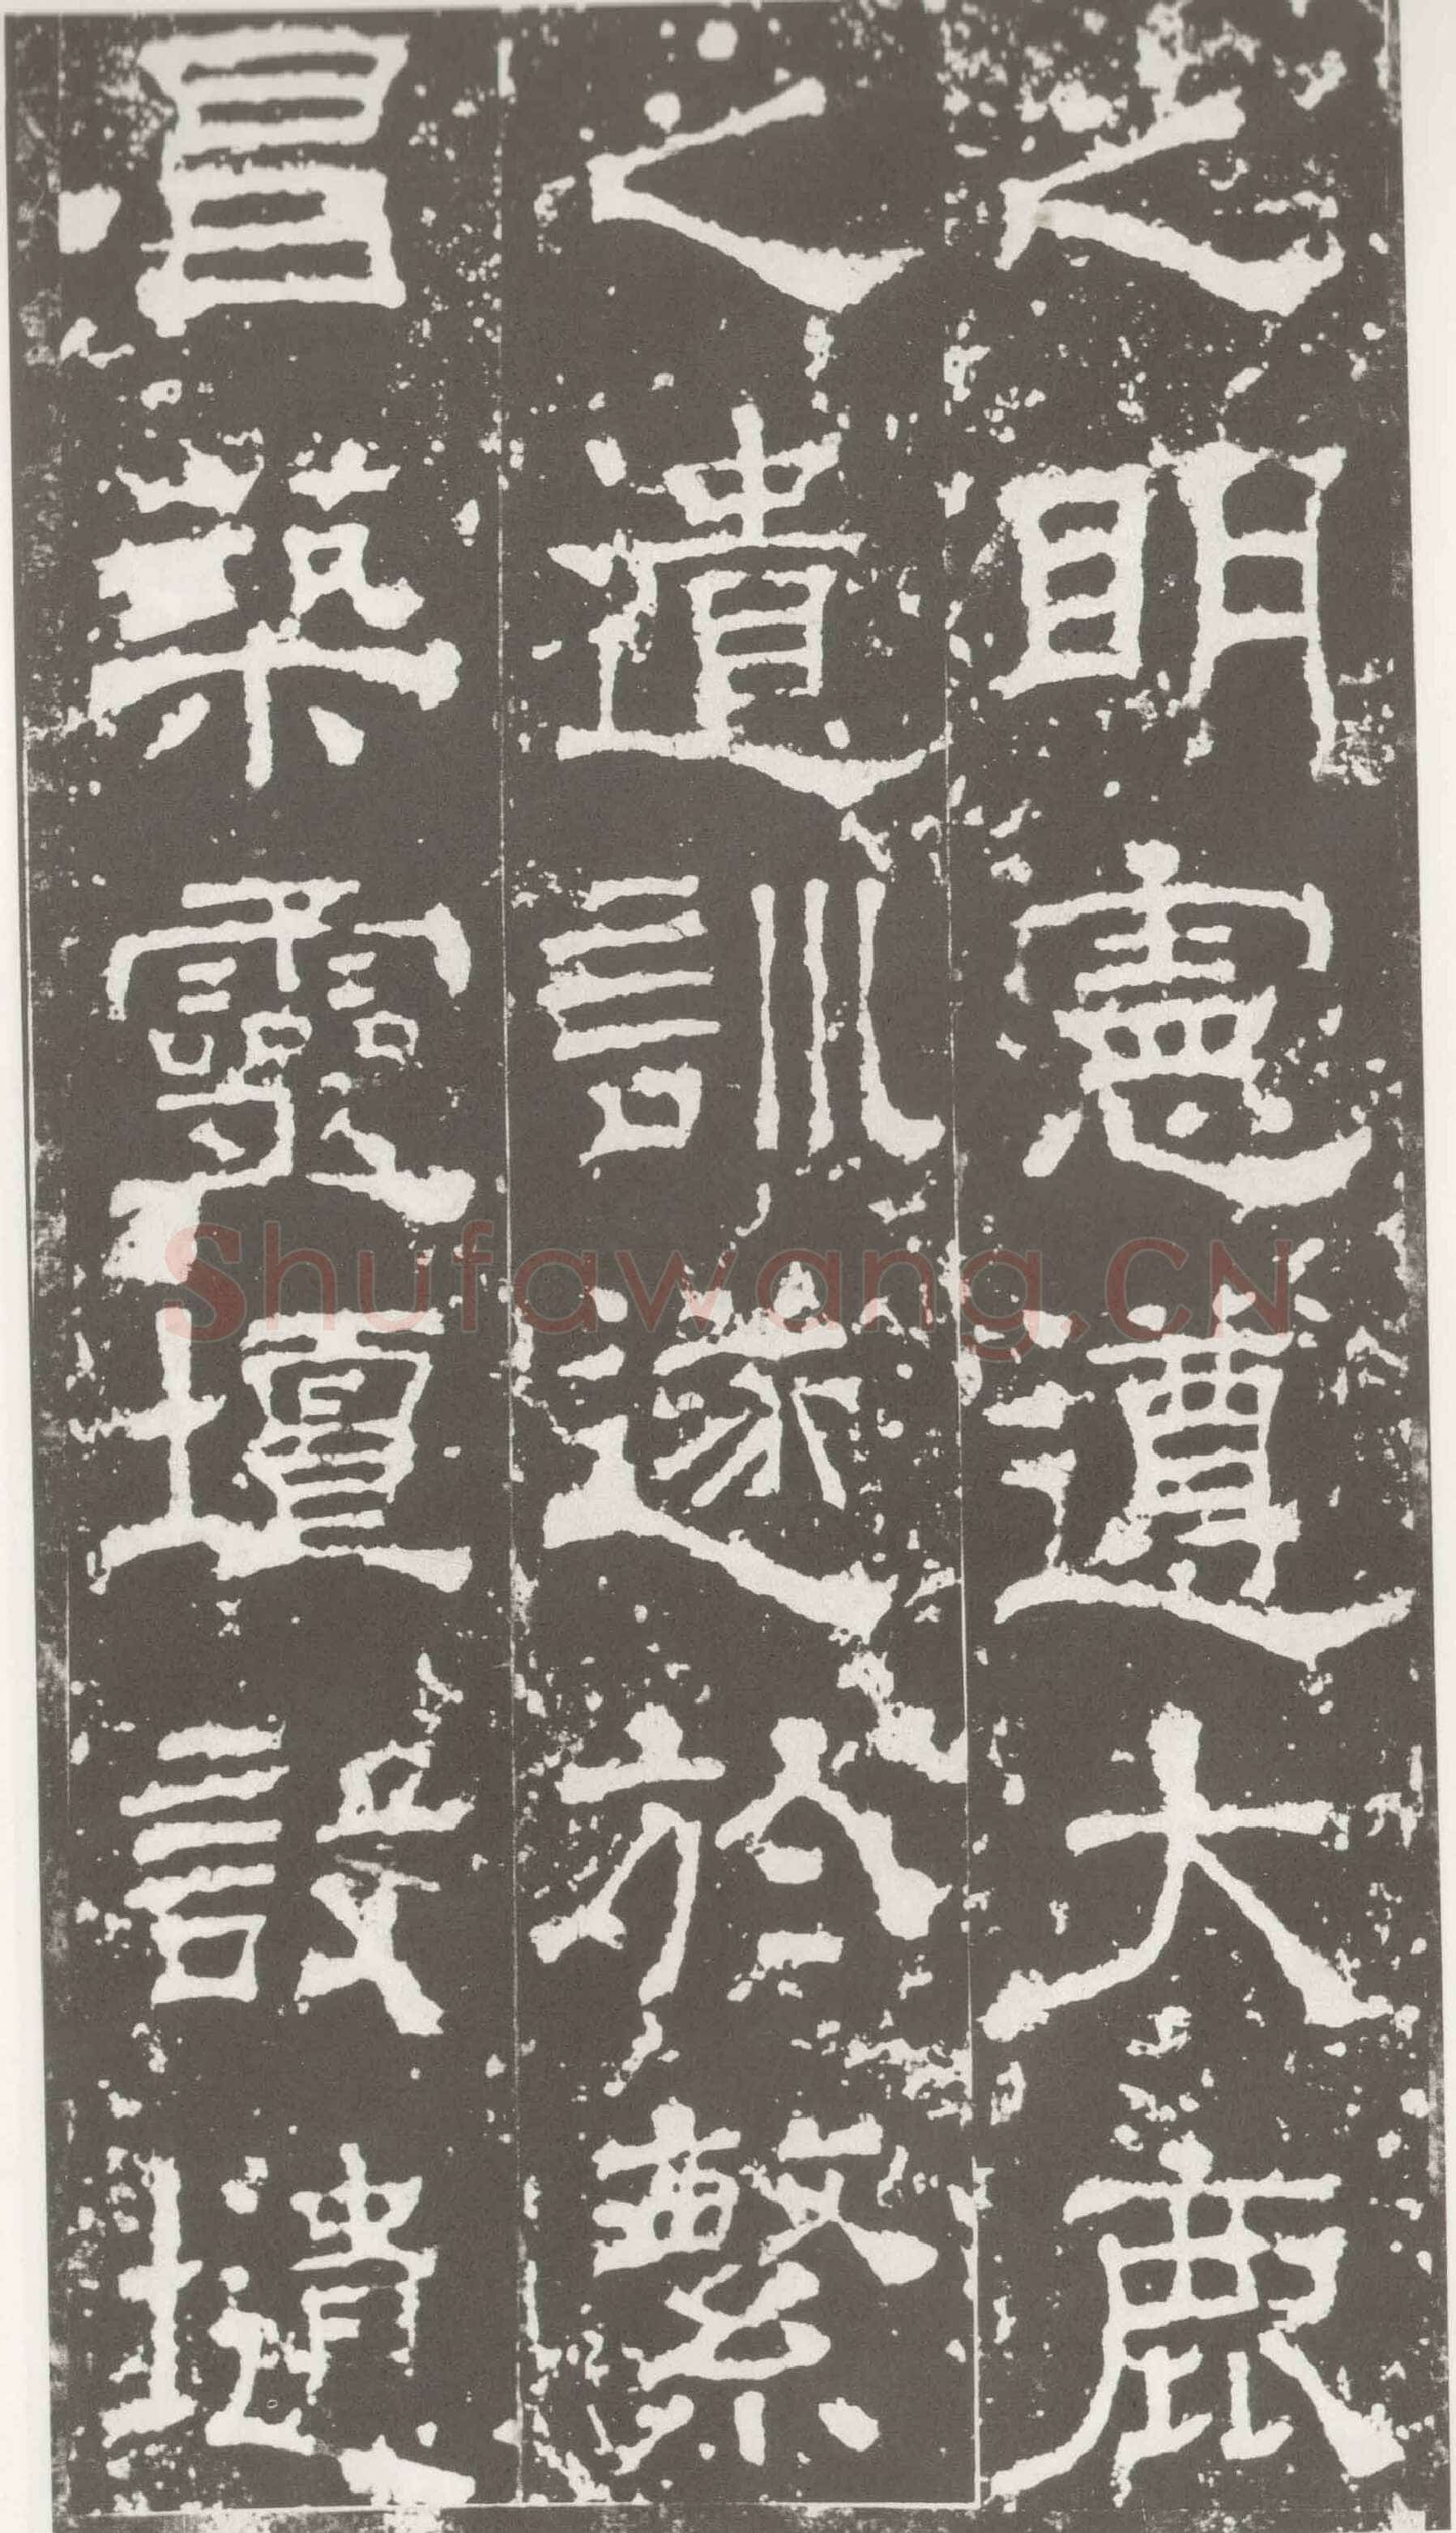 之明憲遵大鹿
之遺訓遂於繁
昌築靈壇設壝
Shufawang.CN